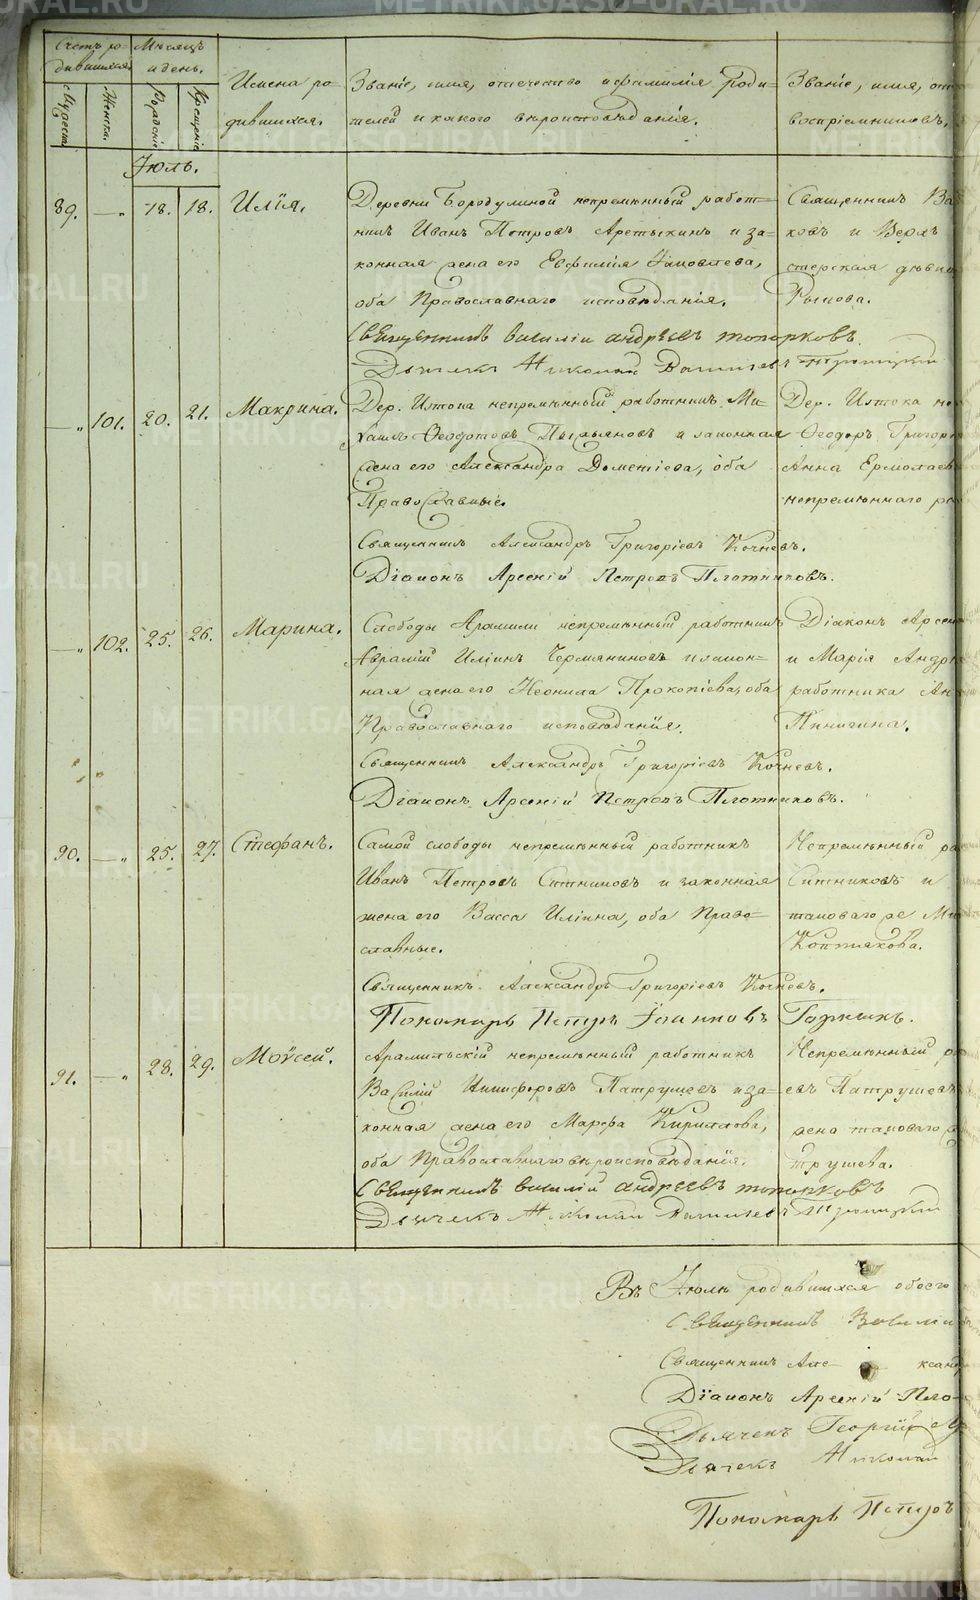 Счетъ ро-
дившихся.
Мѣсяцъ
и день.
Мужеска.
Женска.
Рожденія
Крещенія
Имена ро-
дившихся.
Званіе, имя, отечество и фамилія Роди-
телей и какого вѣроисповѣданія.
Званіе, имя,
воспріемниковъ,
Іюль.
89. 18. 18. Илія.
Деревни Бородулиной непремѣнный работ-
никъ Иванъ Петровъ и за-
конная жена его Евфимія Іаковлева,
оба Православнаго исповѣданія.
Священникъ Василій Андреевъ Топорковъ
Дьячекъ Николай Троицкій
Священникъ Ва
ковъ и Вера
101. 20. 21. Макрина.
Дер. Истока непремѣнный работникъ Ми-
хаилъ Ѳеодотовъ и законная
жена его Александра Дометіева, оба
Православные.
Священникъ Александръ Григоріевъ Кочневъ.
Діаконъ Арсеній Петровъ Плотниковъ.
Дер. Истока не
Ѳеодоръ Григор
Анна Ермолаев
непремѣннаго р
102. 25. 26. Марина.
Слободы Арамили непремѣнный работникъ
Авраамій Иліинъ Чермяниновъ и закон-
ная жена его Неонила Прокопіева, оба
Православнаго исповѣданія.
Священникъ Александръ Григоріевъ Кочневъ.
Діаконъ Арсеній Петровъ Плотниковъ.
Діаконъ Арсен
и Марія Андр
работника Ан
Пинигина.
90. 25. 27. Стефанъ.
Самой слободы непремѣнный работникъ
Иванъ Петровъ Ситниковъ и законная
жена его Васса Иліина, оба Право-
славные.
Священникъ Александръ Григоріевъ Кочневъ.
Пономарь Петръ Іоанновъ Горныхъ.
Непремѣнный ра
Ситниковъ и
таковаго же Ми
Коптякова.
91. 28. 29. Моѵсей.
Арамильскій непремѣнный работникъ
Василій Никифоровъ Патрушевъ и за-
конная жена его Марѳа Кирилова,
оба Православнаго вѣроисповѣданія.
Священникъ Василій Андреевъ Топорковъ
Дьячекъ Николай Троицкій
Непремѣнный р
евъ Патрушевъ
жена таковаго
трушева.
Въ Іюлѣ родившихся обоего
Священникъ Василій
Священникъ Александ
Діаконъ Арсеній Пло-
Дьячекъ Георгій
Дьячекъ Николай
Пономарь Петръ
METRIKI.GASO-URAL.RU